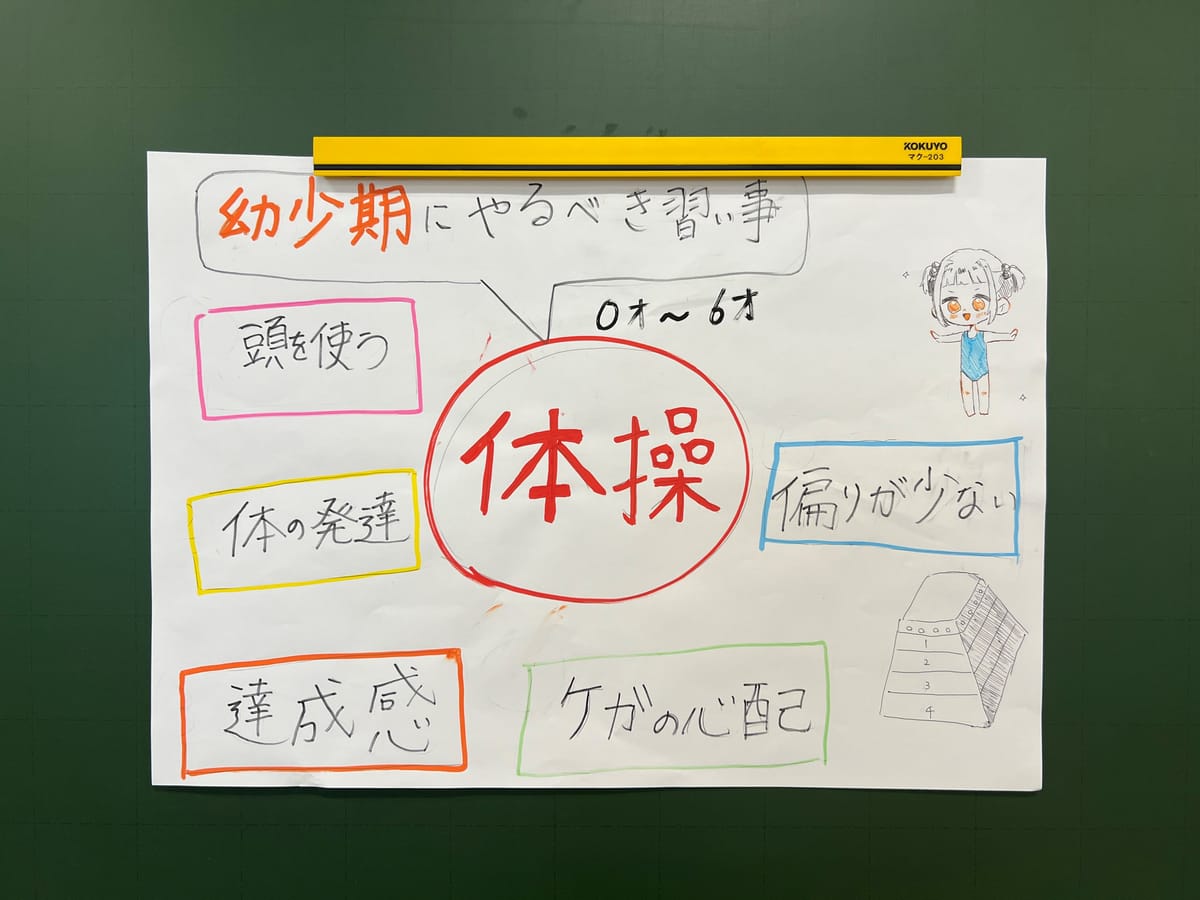 KOKUYO
マク-203
幼少期にやるべき習い事
0才〜6才
頭を使う
体操
体の発達
偏りが少ない
達成感
ケガの心配
1
2
3
4